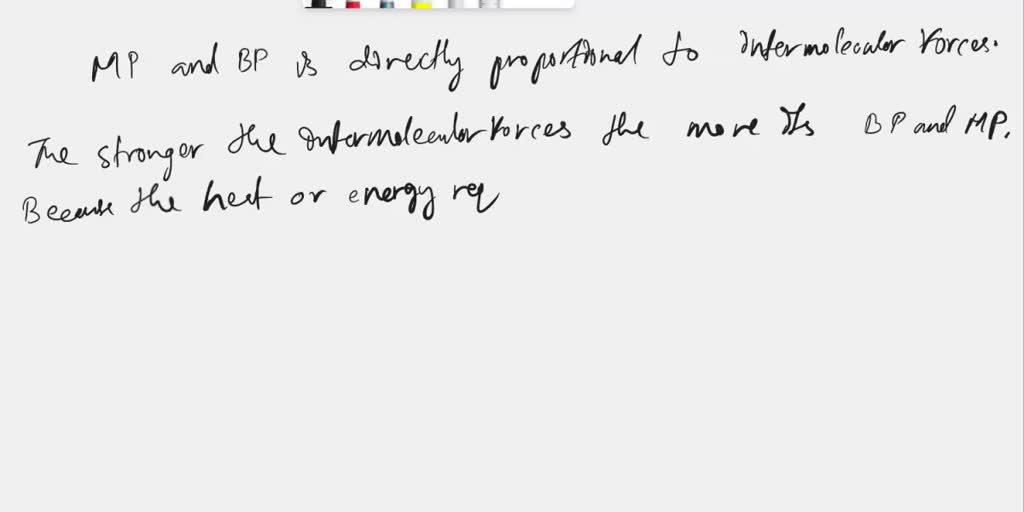 MP and BP is directly proportional to Intermolecular Forces.
The stronger the Intermolecular Forces the more Its BP and MP.
Because the heat or energy req